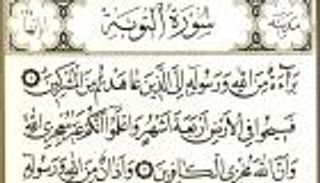 سورة التوبة
براءة من الله ورسوله إلى الذين عاهدتم من المشركين
فسيحوا في الأرض أربعة أشهر واعلموا أنكم غير معجزي الله
وأن الله مخزي الكافرين وأذان من الله ورسوله